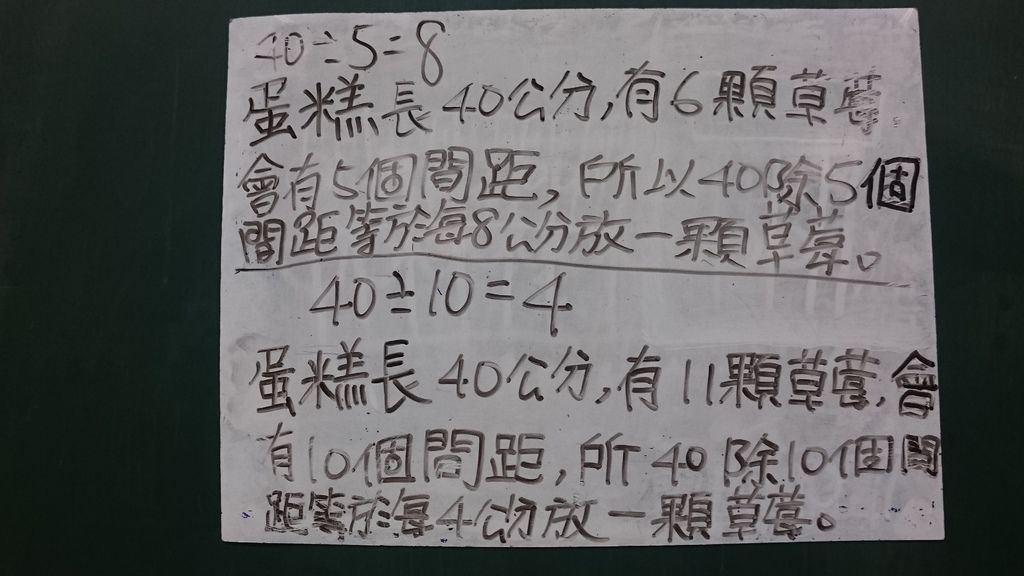 40÷5=8
蛋糕長40公分,有6顆草莓
會有5個間距,所以40除5個
間距等於每8公分放一顆草莓。
40÷10=4
蛋糕長40公分,有11顆草莓,會
有10個間距,所40除10個間
距等於每4公分放一顆草莓。